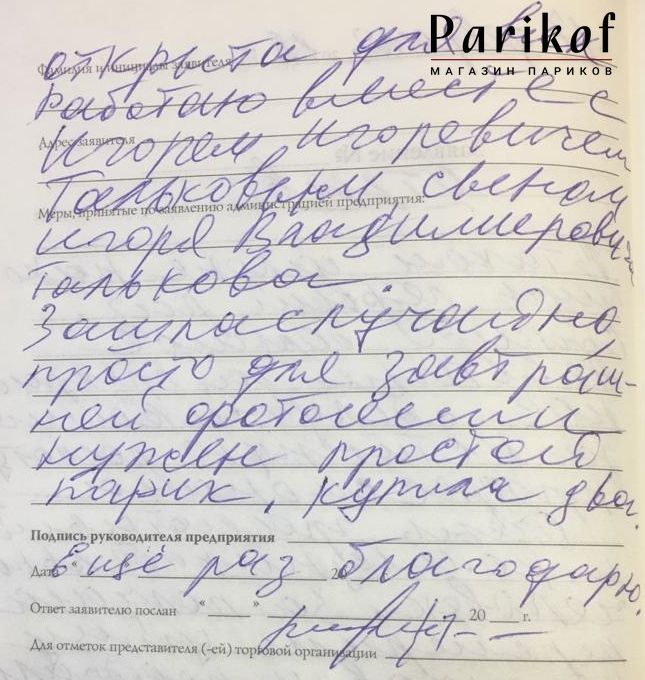 Parikof
МАГАЗИН ПАРИКОВ
открыта для вас
Фамилия и инициалы заявителя
Работаю вместе с
Адрес заявителя
Игорем Игоревичем
Тальковым, сыном
Меры, принятые по заявлению администрацией предприятия:
Игоря Владимировича
Талькова
Зашла случайно,
просто для завтраш-
ней фотосессии
нужен простой
парик, купила два.
Подпись руководителя предприятия
Ещё раз благодарю.
Дата « 20
Ответ заявителю послан « » 20 г.
Для отметок представителя (-ей) торговой организации